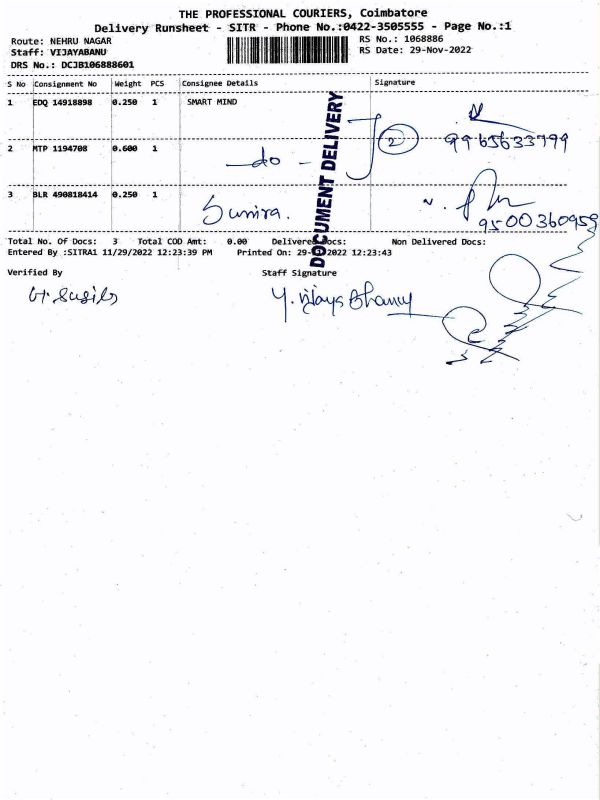 THE PROFESSIONAL COURIERS, Coimbatore
Delivery Runsheet - SITR - Phone No.:0422-3505555 - Page No.:1
Route: NEHRU NAGAR
Staff: VIJAYABANU
DRS No.: DCJB106888601
RS No.: 1068886
RS Date: 29-Nov-2022
S No Consignment No Weight PCS Consignee Details Signature
1 EDQ 14918898 0.250 1 SMART MIND
2 MTP 1194708 0.600 1 -do- 2 9965633799
3 BLR 490818414 0.250 1 9500360959
DOCUMENT DELIVERY
Total No. Of Docs: 3 Total COD Amt: 0.00 Delivered Docs: Non Delivered Docs:
Entered By :SITRA1 11/29/2022 12:23:39 PM Printed On: 29-2022 12:23:43
Verified By Staff Signature